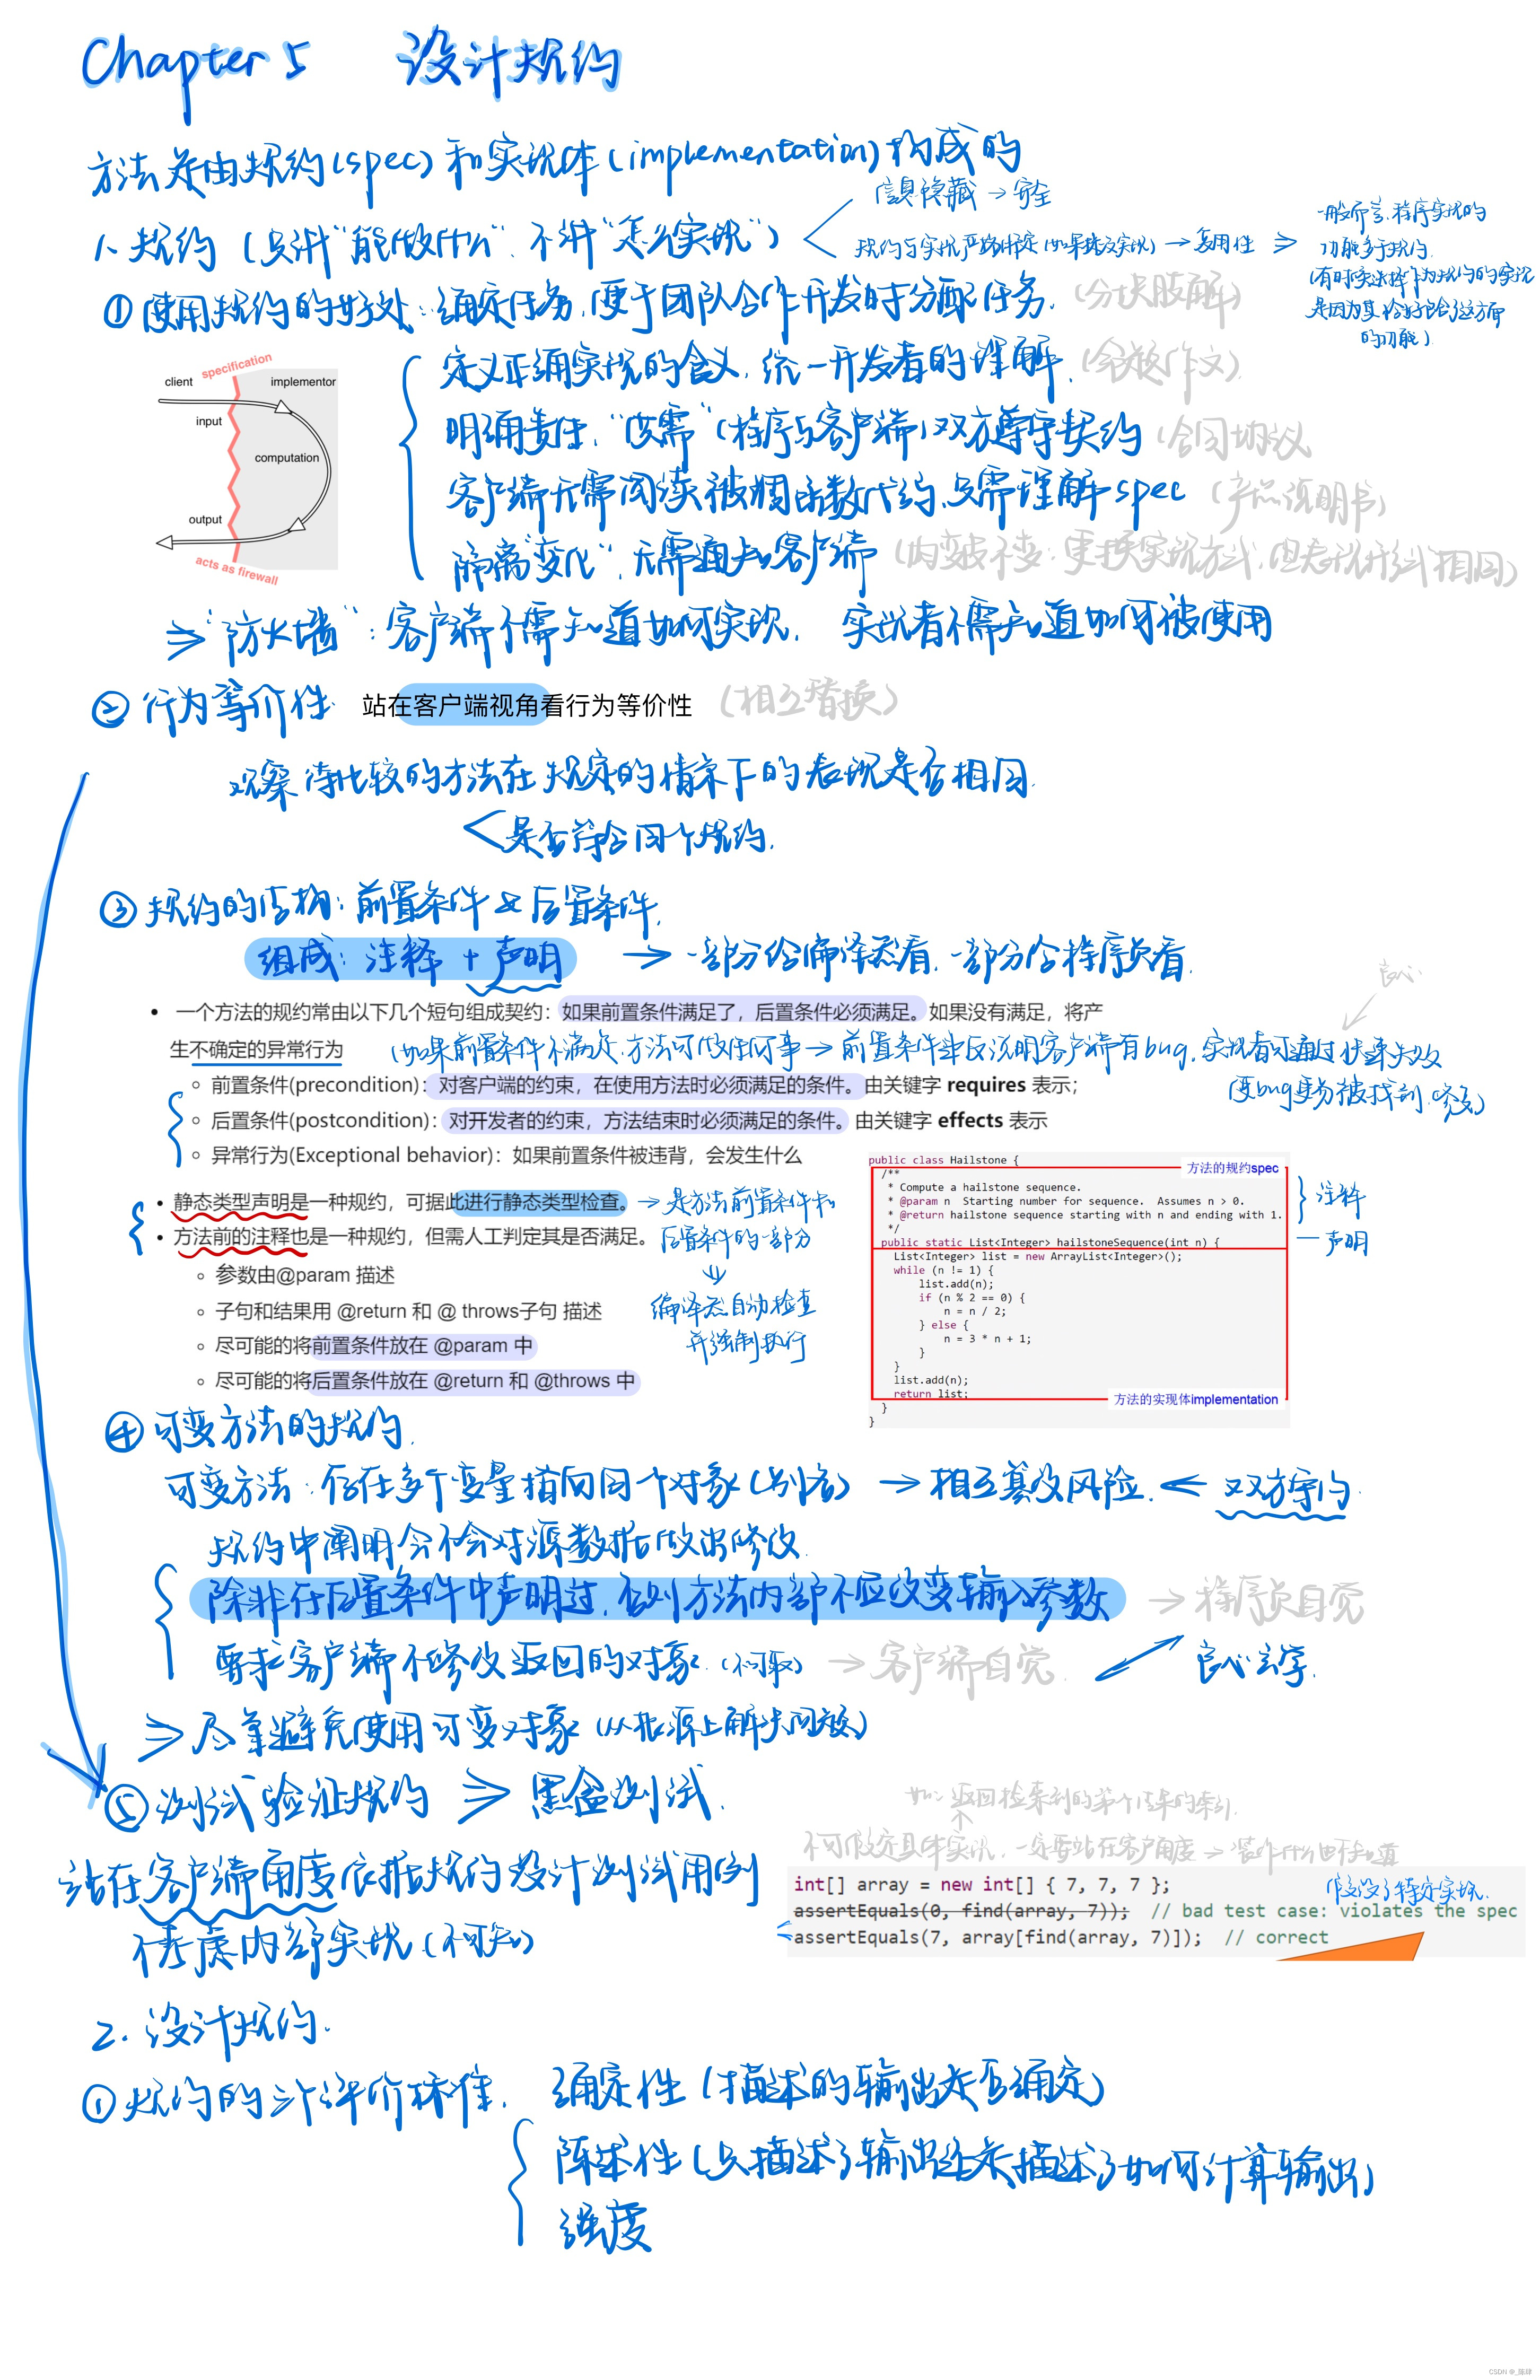 Chapter 5 设计规约
方法是由规约(spec)和实现体(implementation)构成的
信息隐藏 → 安全
1. 规约 (只讲"能做什么", 不讲"怎么实现")
→ 复用性 ⇒
一般而言,程序实现的
功能多于规约
的功能)
① 使用规约的好处: 确定任务,便于团队合作开发时分配任务. (分块肢解)
定义正确实现的含义,统一开发者的理解.
明确责任, (程序与客户端)双方遵守契约 (合同协议)
客户端无需阅读被调函数代码,只需理解spec (产品说明书)
隔离"变化",无需通知客户端 (内变外不变:更换实现方式,但表现形式相同)
specification
client
implementor
input
computation
output
acts as firewall
⇒ "防火墙": 客户端不需知道如何实现, 实现者不需知道如何被使用
② 行为等价性 站在客户端视角看行为等价性 (相互替换)
观察待比较的方法在规定的情景下的表现是否相同.
是否符合同个规约.
③ 规约的结构: 前置条件 & 后置条件.
组成: 注释 + 声明 → 一部分给编译器看,一部分给程序员看.
良心
• 一个方法的规约常由以下几个短句组成契约：如果前置条件满足了，后置条件必须满足。如果没有满足，将产
生不确定的异常行为
(如果前置条件不满足,方法可做任何事 → 前置条件违反说明客户端有bug,实现者可通过快速失败
使bug更易被找到、修复)
◦ 前置条件(precondition)：对客户端的约束，在使用方法时必须满足的条件。由关键字 requires 表示；
◦ 后置条件(postcondition)：对开发者的约束，方法结束时必须满足的条件。由关键字 effects 表示
◦ 异常行为(Exceptional behavior)：如果前置条件被违背，会发生什么
• 静态类型声明是一种规约，可据此进行静态类型检查。 → 是方法前置条件和
• 方法前的注释也是一种规约，但需人工判定其是否满足。 后置条件的一部分
◦ 参数由@param 描述
◦ 子句和结果用 @return 和 @ throws子句 描述
编译器自动检查
◦ 尽可能的将前置条件放在 @param 中
并强制执行
◦ 尽可能的将后置条件放在 @return 和 @throws 中
public class Hailstone {
方法的规约spec
/**
* Compute a hailstone sequence.
* @param n Starting number for sequence. Assumes n > 0.
* @return hailstone sequence starting with n and ending with 1.
*/
public static List<Integer> hailstoneSequence(int n) {
注释
声明
List<Integer> list = new ArrayList<Integer>();
while (n != 1) {
list.add(n);
if (n % 2 == 0) {
n = n / 2;
} else {
n = 3 * n + 1;
}
}
list.add(n);
return list;
方法的实现体implementation
}
}
④ 可变方法的规约.
可变方法: 存在多个变量指向同个对象(别名) → 相互篡改风险. ← 双方守约.
规约中阐明会不会对源数据做出修改.
除非在后置条件中声明过,否则方法内部不应改变输入参数 → 程序员自觉
要求客户端不修改返回的对象. (不可取) → 客户端自觉. 良心玄学.
⇒ 尽量避免使用可变对象 (从根源上解决问题)
⑤ 测试验证规约 ⇒ 黑盒测试.
如: 返回检索到的第个结果的索引.
不可假定具体实现,一定要站在客户角度 → 装作什么也不知道
站在客户端角度依据规约设计测试用例
不考虑内部实现 (不可知)
int[] array = new int[] { 7, 7, 7 };
假设了特定实现.
assertEquals(0, find(array, 7)); // bad test case: violates the spec
assertEquals(7, array[find(array, 7)]); // correct
2. 设计规约.
① 规约的三个评价标准. 确定性 (描述的输出是否确定)
陈述性 (只描述了输出还是描述了如何计算输出)
强度